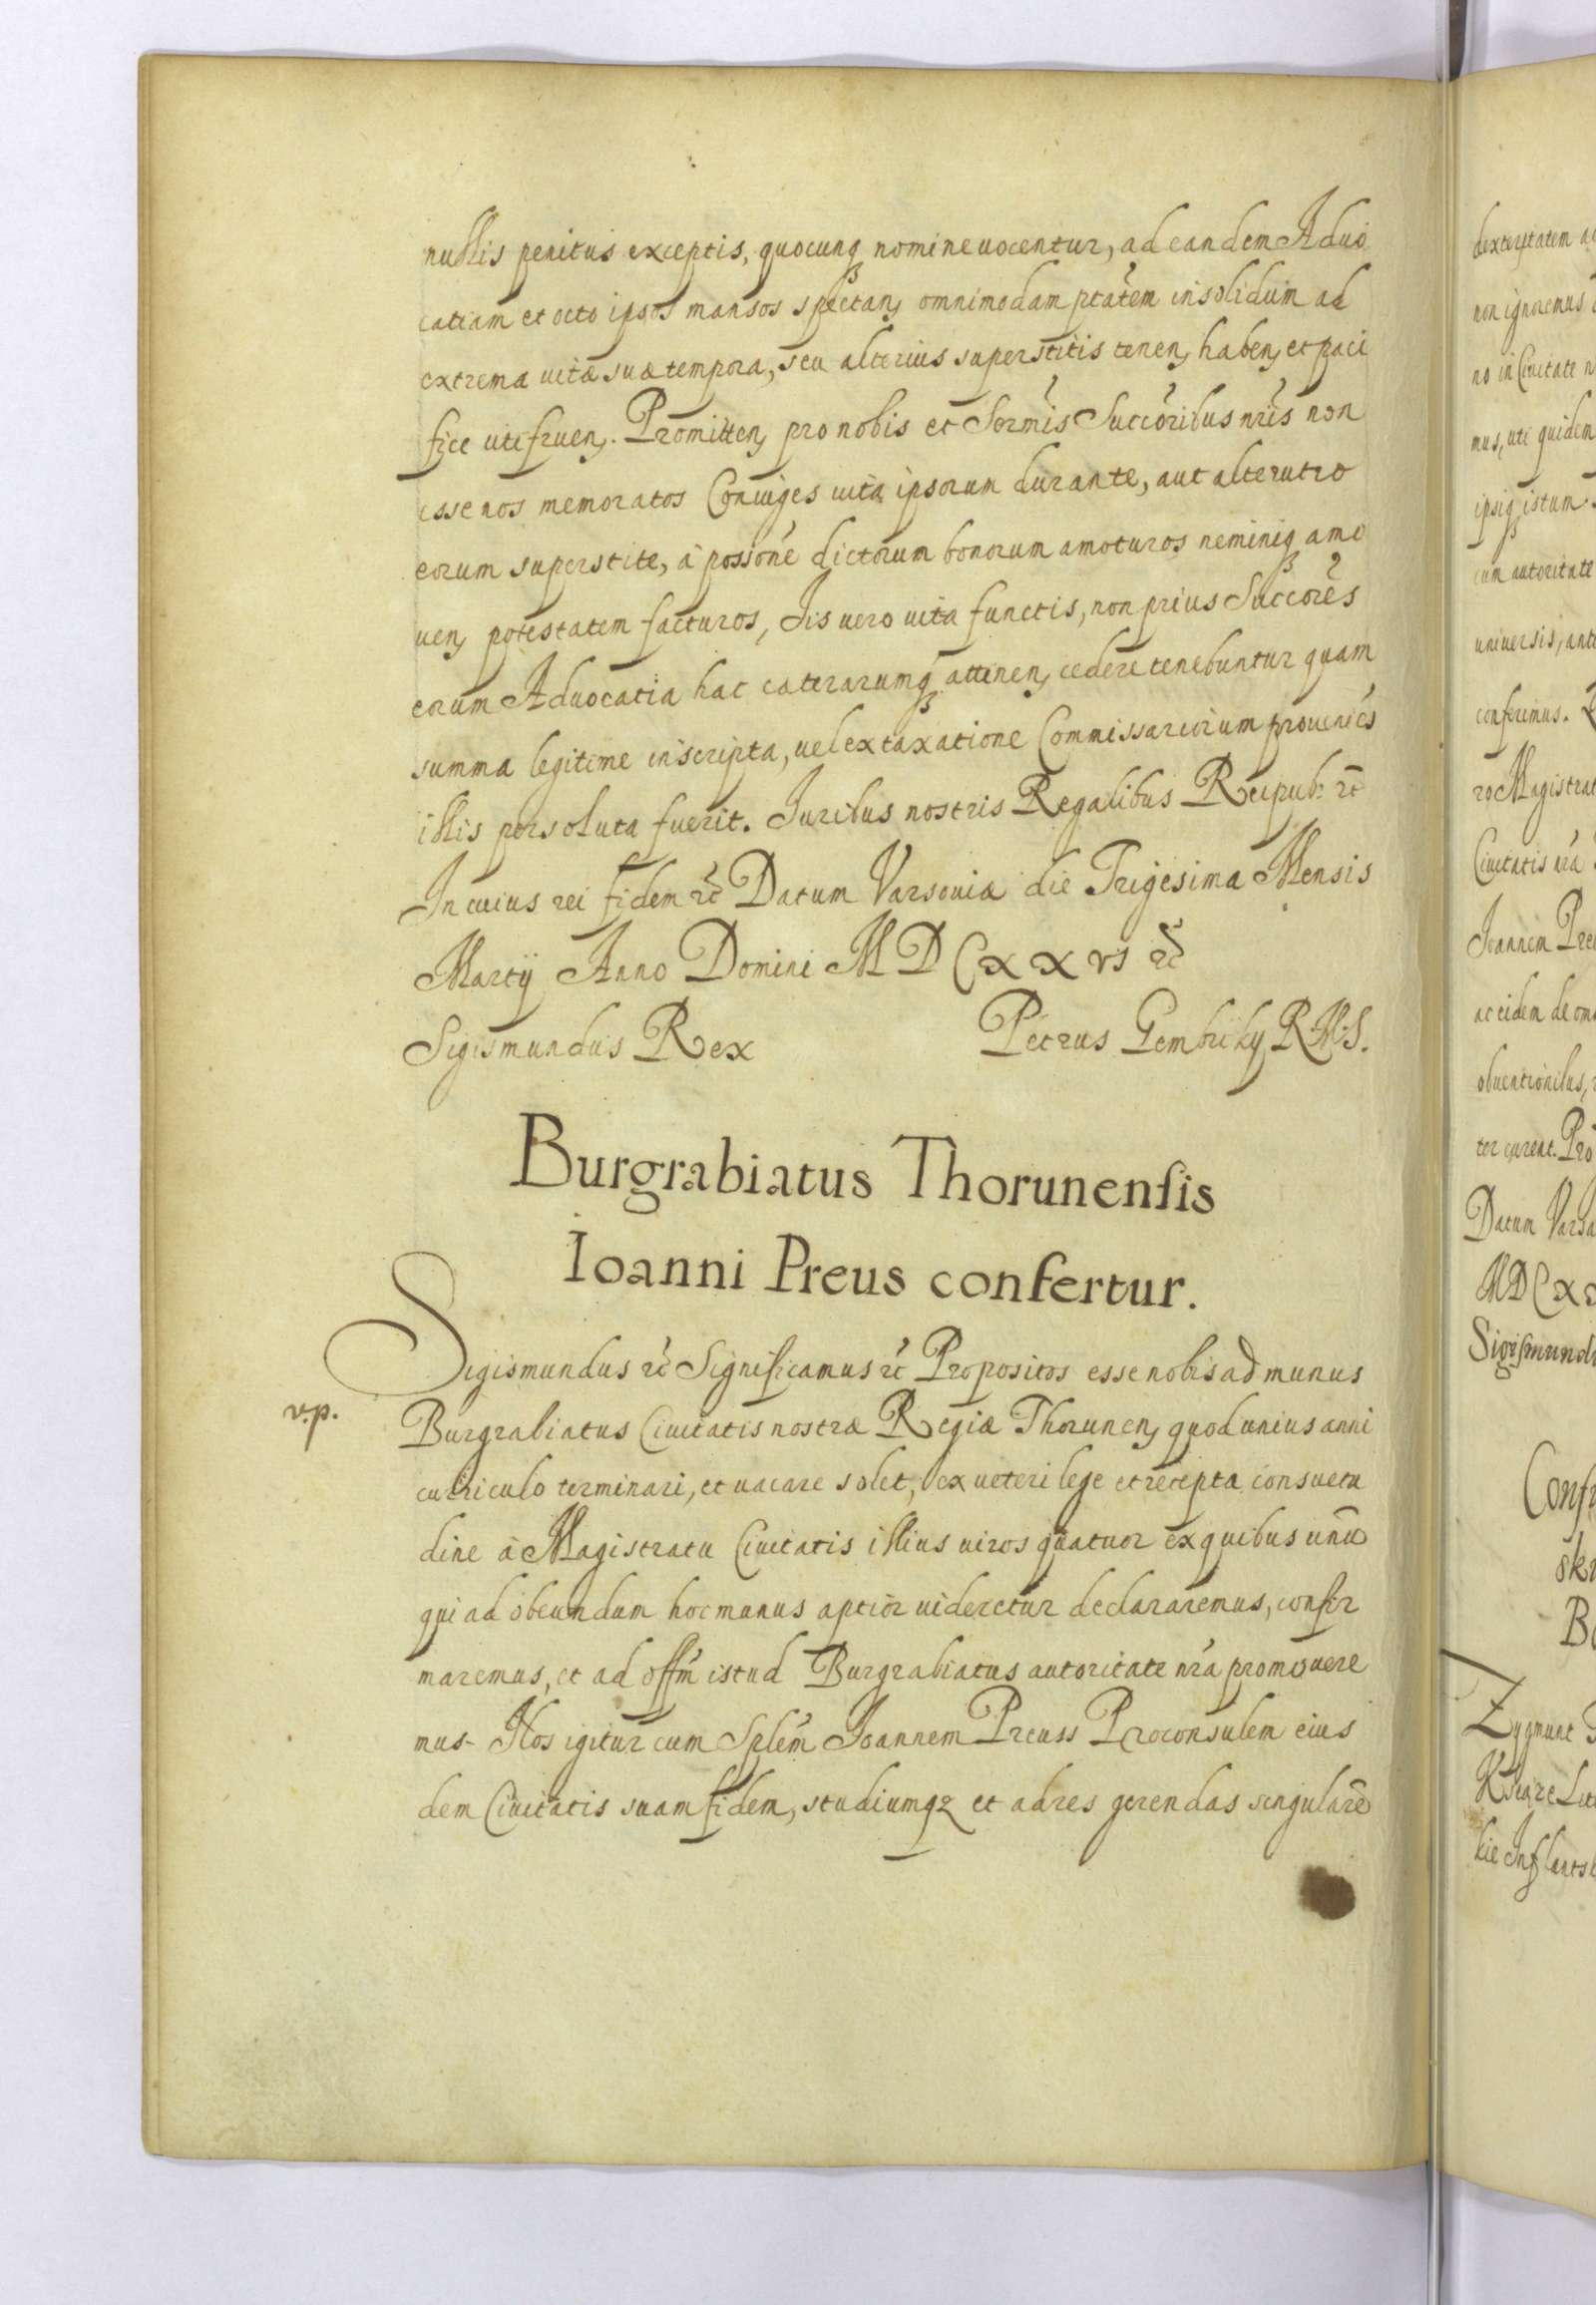 nullis penitus exceptis, quocunq nomine uocentur, ad eandem Aduo
catiam et octo ipsos mansos spectan, omnimodam ptatem in solidum ad
extrema uitæ suæ tempora, seu alterius superstitis tenen, haben, et paci
fice uti fruen. Promitten, pro nobis et Sermis Succoribus nris non
esse nos memoratos Coniuges uita ipsorum durante, aut alterutro
eorum superstite, à possione dictorum bonorum amoturos neminiq amo
uen, potestatem facturos, Iis uero uita functis, non prius Succores
eorum Aduocatia hac caterarumq attinen, cedere tenebuntur quam
summa legitime inscripta, uel ex taxatione Commissariorum proueniēs
illis persoluta fuerit. Iuribus nostris Regalibus Reipub: rc̄
In cuius rei fidem rc̄ Datum Varsouiæ die Trigesima Mensis
Martij Anno Domini M D C x x vi rc̄
Sigismundus Rex
Petrus Gembicky R.M.S.
Burgrabiatus Thorunensis
Ioanni Preus confertur.
Sigismundus rc̄ Significamus rc̄ Propositos esse nobis ad munus
v.p.
Burgrabiatus Ciuitatis nostræ Regiæ Thorunen, quod unius anni
curriculo terminari, et uacare solet, ex ueteri lege et recepta consuetu
dine à Magistratu Ciuitatis illius uiros quatuor ex quibus unū
qui ad obeundum hoc munus aptior uideretur declararemus, confir
maremus, et ad offm istud Burgrabiatus autoritate nra promouere
mus. Nos igitur cum Splem Ioannem Preuss Proconsulem eius
dem Ciuitatis suam fidem, studiumqz et ad res gerendas singularē